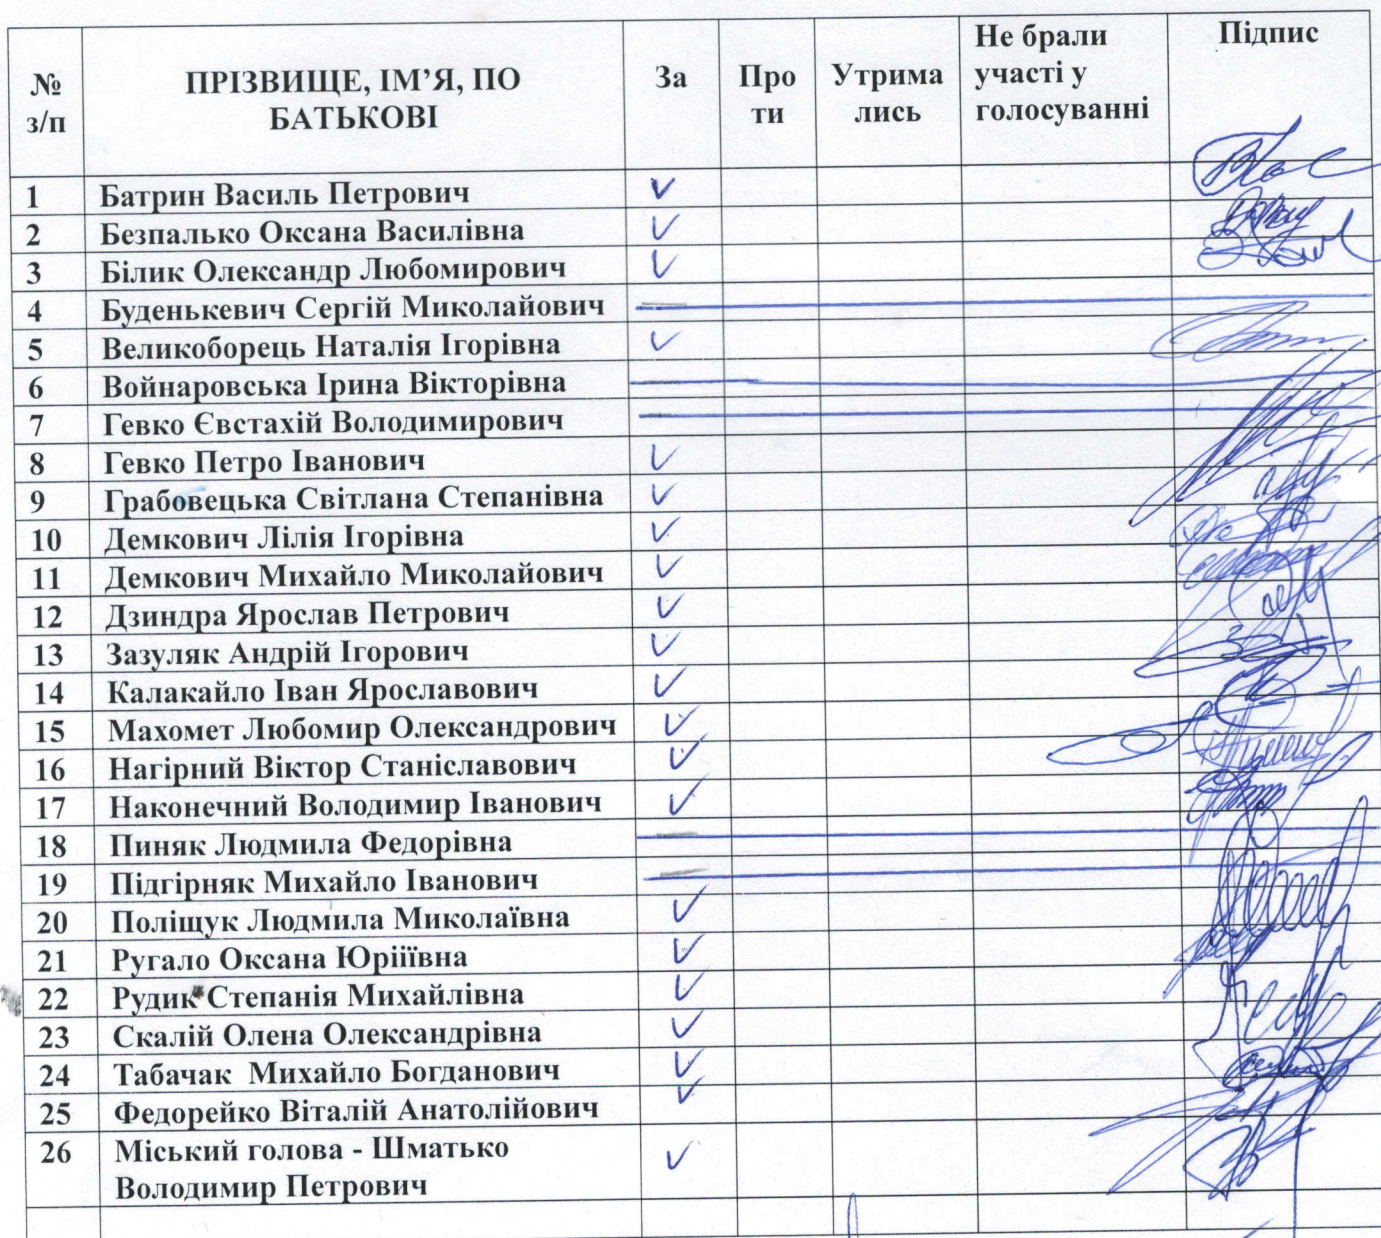 № з/п ПРІЗВИЩЕ, ІМ’Я, ПО БАТЬКОВІ За Про ти Утрима лись Не брали участі у голосуванні Підпис
1 Батрин Василь Петрович V
2 Безпалько Оксана Василівна V
3 Білик Олександр Любомирович V
4 Буденькевич Сергій Миколайович
5 Великоборець Наталія Ігорівна V
6 Войнаровська Ірина Вікторівна
7 Гевко Євстахій Володимирович
8 Гевко Петро Іванович V
9 Грабовецька Світлана Степанівна V
10 Демкович Лілія Ігорівна V
11 Демкович Михайло Миколайович V
12 Дзиндра Ярослав Петрович V
13 Зазуляк Андрій Ігорович V
14 Калакайло Іван Ярославович V
15 Махомет Любомир Олександрович V
16 Нагірний Віктор Станіславович V
17 Наконечний Володимир Іванович V
18 Пиняк Людмила Федорівна
19 Підгірняк Михайло Іванович
20 Поліщук Людмила Миколаївна V
21 Ругало Оксана Юріїївна V
22 Рудик Степанія Михайлівна V
23 Скалій Олена Олександрівна V
24 Табачак Михайло Богданович V
25 Федорейко Віталій Анатолійович V
26 Міський голова - Шматько V
Володимир Петрович